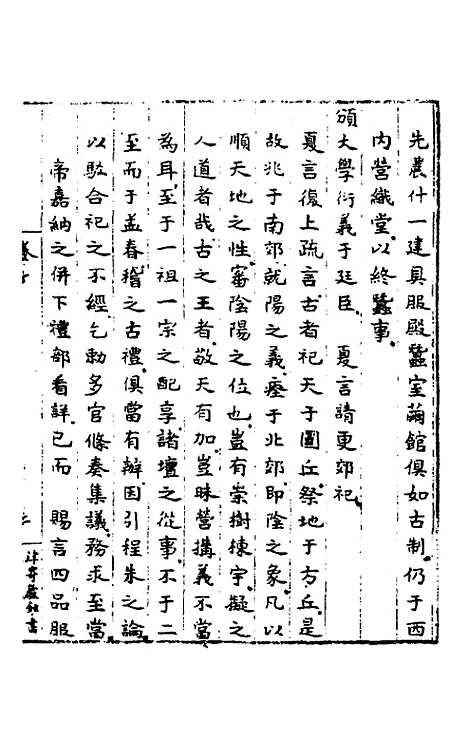 先農什一建具服殿蠶室繭館俱如古制仍于西
内營織堂以終蠶事
頒大學衍義于廷臣　夏言請更郊祀
夏言復上疏言古者祀天于圜丘祭地于方丘是
故兆于南郊就陽之義瘞于北郊即陰之象凡以
順天地之性審陰陽之位也豈有崇樹棟宇擬之
人道者哉古之王者敬天有加豈昧營搆義不當
為耳至于一祖一宗之配享諸壇之從事不于二
至而于孟春稽之古禮俱當有辨因引程朱之論
以駁合祀之不經乞勅多官條奏集議務求至當
帝嘉納之併下禮部看詳已而　賜言四品服